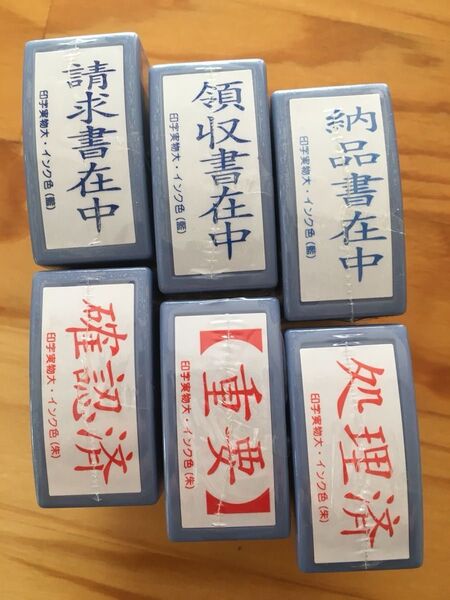 請求書在中
印字実物大・インク色(藍)
領収書在中
印字実物大・インク色(藍)
納品書在中
印字実物大・インク色(藍)
確認済
印字実物大・インク色(朱)
【重要】
印字実物大・インク色(朱)
処理済
印字実物大・インク色(朱)